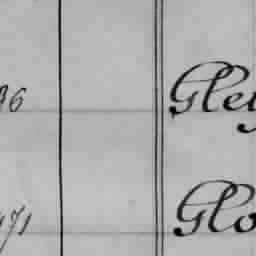 96 Gley
471 Glo